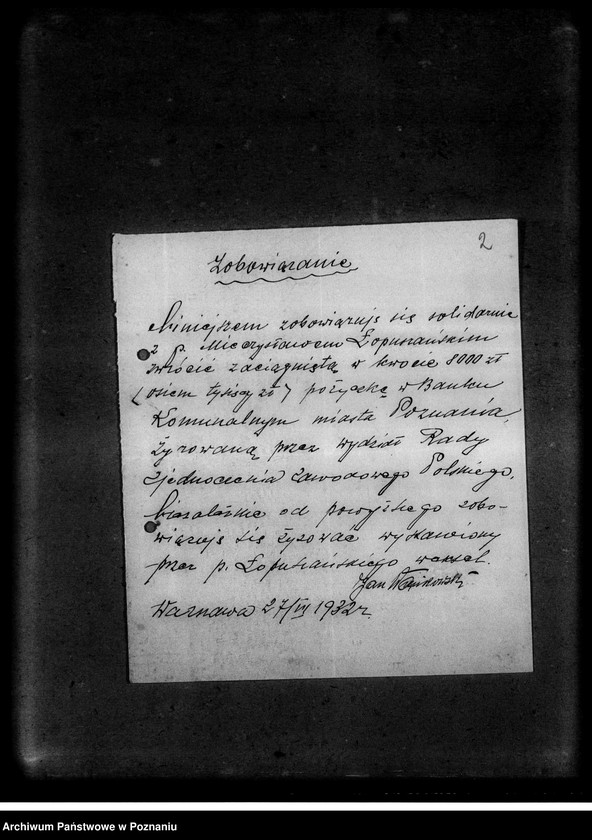 2
Zobowiązanie
Niniejszem zobowiązuję się solidarnie
z p. Mieczysławem Łopuszańskim
zwrócić zaciągniętą w kwocie 8000 zł
(osiem tysięcy zł) pożyczkę w Banku
Komunalnym miasta Poznania,
żyrowaną przez wydział Rady
Zjednoczenia Zawodowego Polskiego.
Niezależnie od powyższego zobo-
wiązuję się żyrować wystawiony
przez p. Łopuszańskiego weksel.
Jan
Warszawa 27/IV 1932 r.
Archiwum Państwowe w Poznaniu